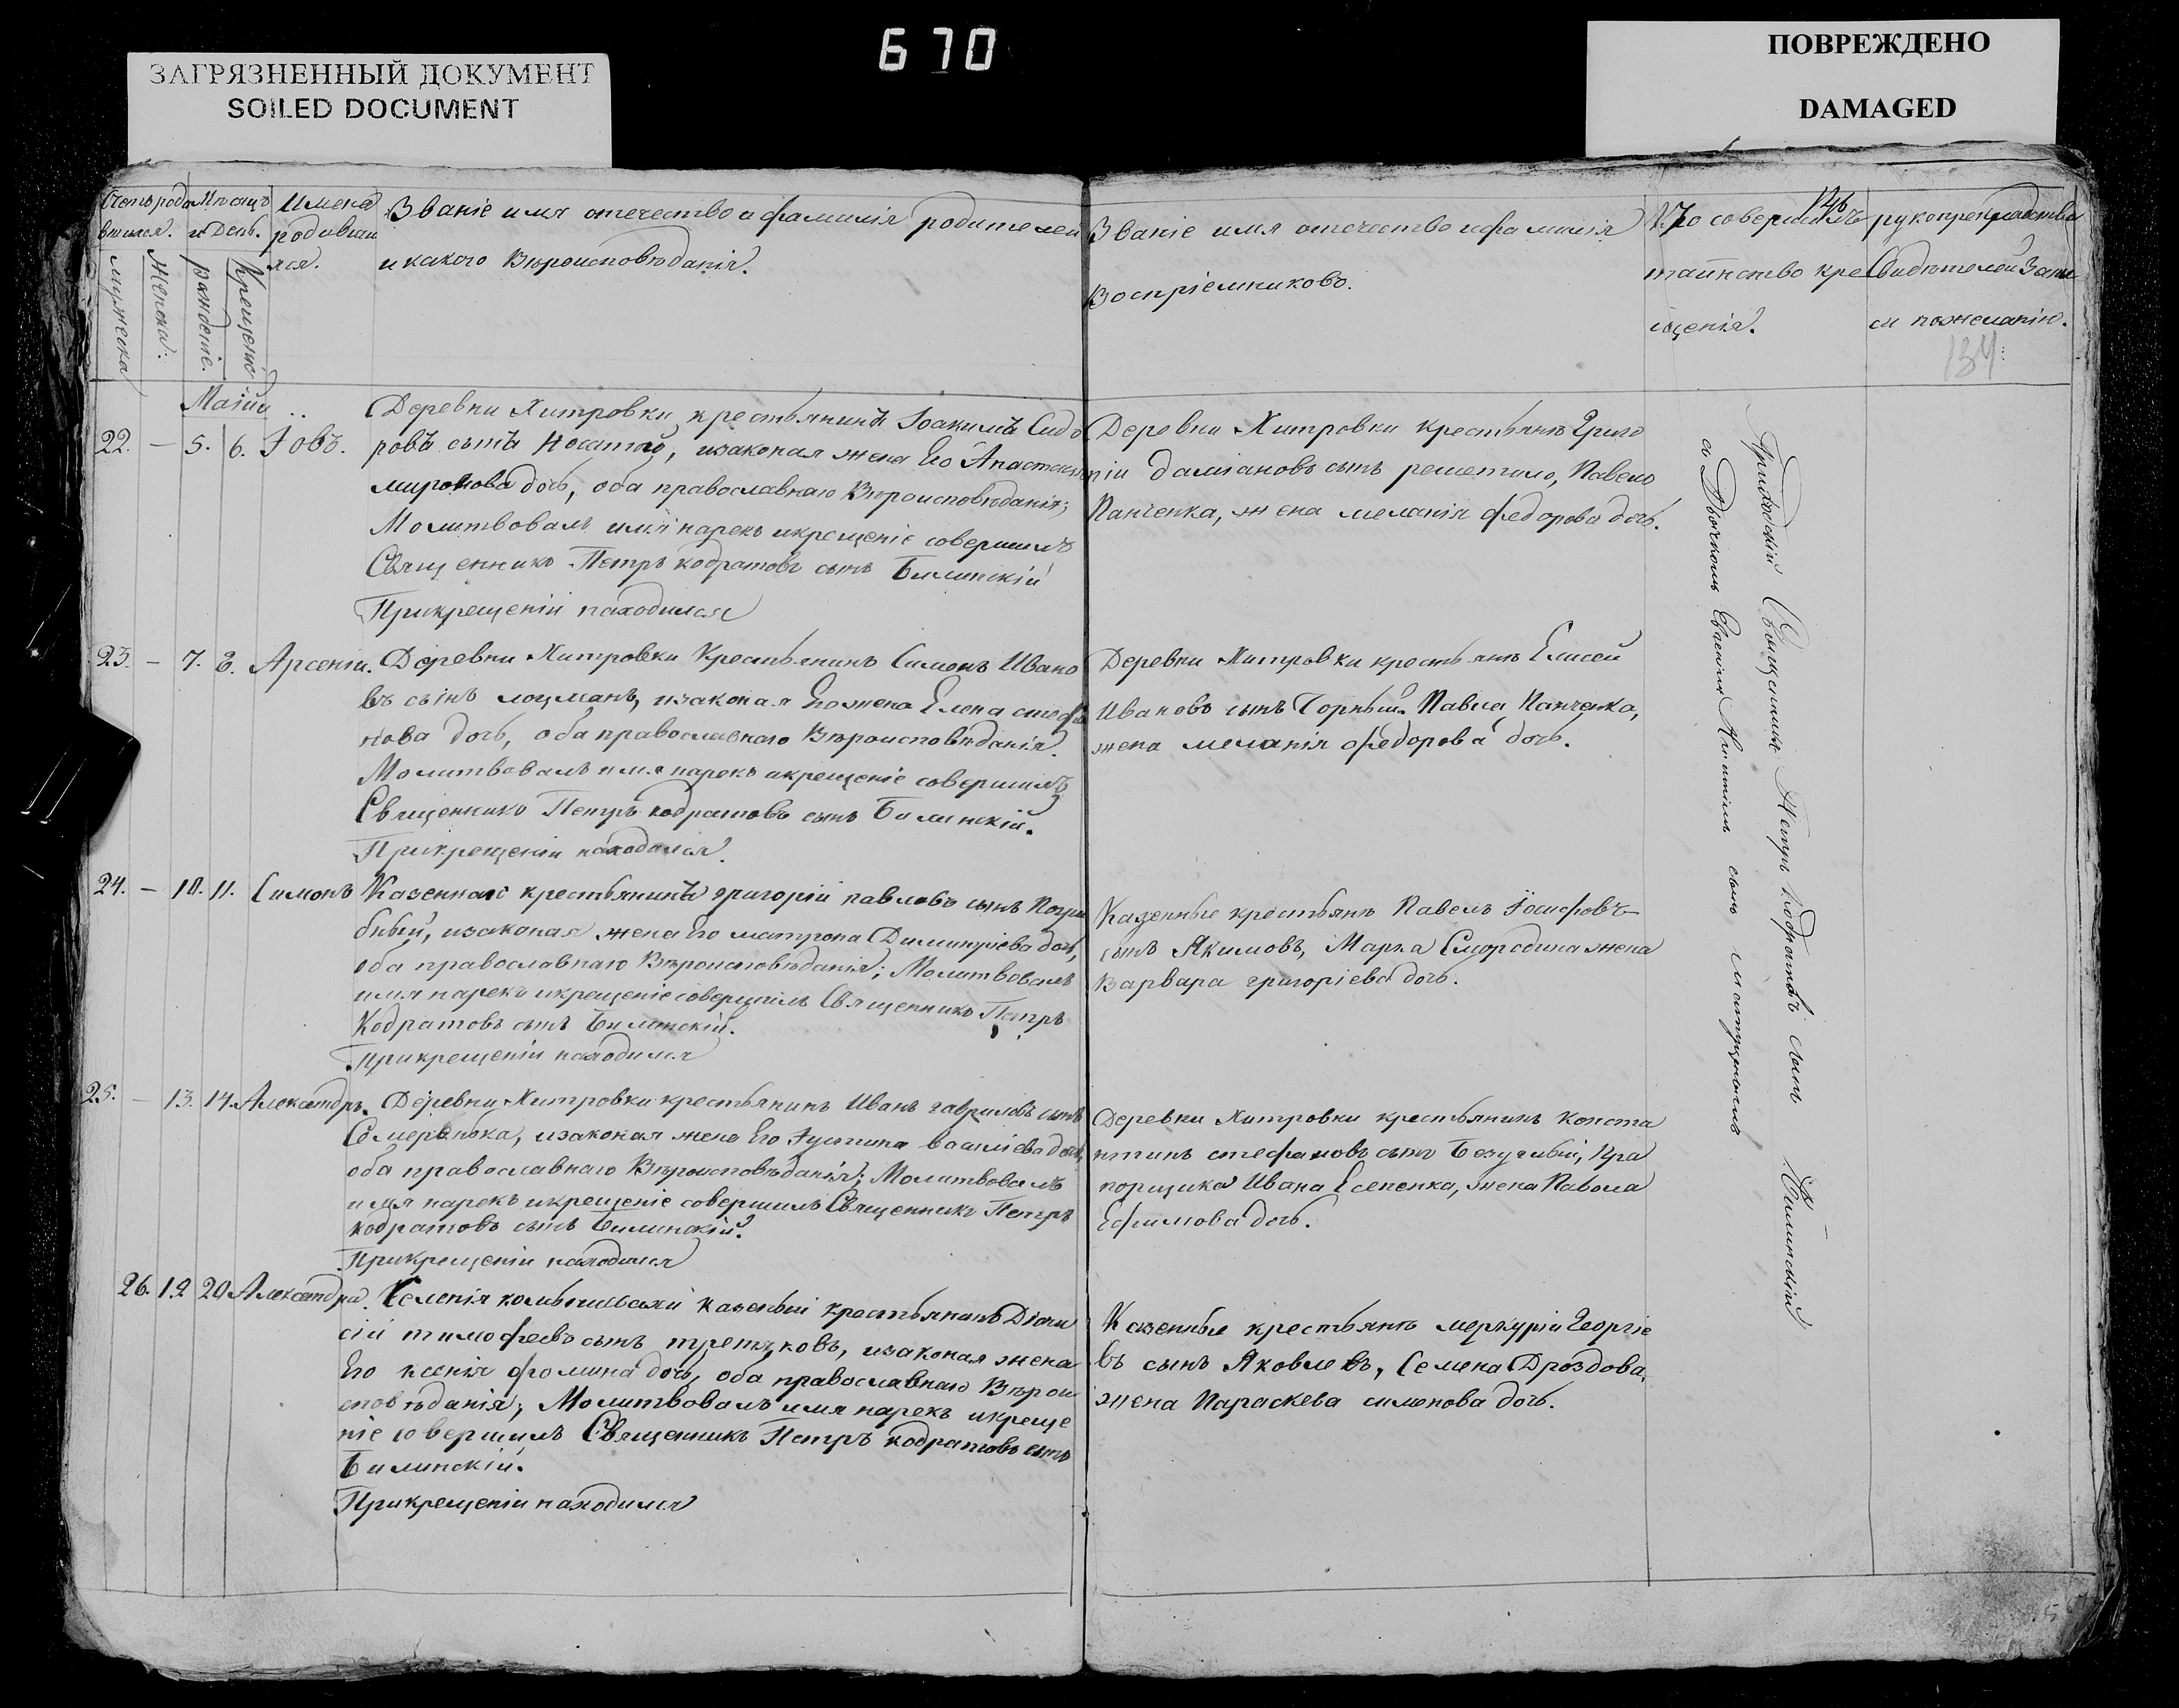 670
ЗАГРЯЗНЕННЫЙ ДОКУМЕНТ
SOILED DOCUMENT
ПОВРЕЖДЕНО
DAMAGED
Счетъ роди Мѣсяцъ Имена Званіе имя отечество и фамилія родителей
вшихся. и День. родивши и какого Вѣроисповѣданія.
хся.
мужеска
женска:
рожденіе.
Крещеніе
Званіе имя отечество и фамилія
Воспріемниковъ.
146
Кто совершилъ
таинство кре
щенія.
рукоприкладство
Свидѣтелей Запи
си по желанію.
134
Маій
22. — 5. 6. Іовъ.
Деревни Хитровки крестьянинъ Іоакимъ Сидо
ровъ сынъ Носатый, и законая жена Его Анастасия
миронова дочь, оба православнаго Вѣроисповѣданія;
Молитвовалъ имя нарекъ и крещеніе совершилъ
Священникъ Петръ кодратовъ сынъ Билинскій
При крещеніи находился
Деревни Хитровки крестьянъ Григо
рій даміановъ сынъ решетило, Павела
Панченка, жена меланія федорова дочь.
23. — 7. 8. Арсеній.
Деревни Хитровки Крестьянинъ Симонъ Ивано
въ сынъ лоцманъ, и законая Его жена Елена стефа
нова дочь, оба православнаго Вѣроисповѣданія.
Молитвовалъ имя нарекъ и крещеніе совершилъ
Священникъ Петръ кодратовъ сынъ Билинскій.
При крещеніи находился.
Деревни Хитровки крестьянъ Елисей
Ивановъ сынъ Чорный. Павла Панченка,
жена меланія федорова дочь.
24. — 10. 11. Симонъ
Казеннаго крестьянинъ григорій павловъ сынъ Погри
бный, и законая жена Его матрона Димитріева дочь,
оба православнаго Вѣроисповѣданія; Молитвовалъ
имя нарекъ и крещеніе совершилъ Священникъ Петръ
Кодратовъ сынъ Билинскій.
При крещеніи находился
Казенные крестьянъ Павелъ Іосифовъ
сынъ Якимовъ, Марка Смородина жена
Варвара григоріева дочь.
25. — 13. 14. Александръ.
Деревни Хитровки крестьянинъ Иванъ гавриловъ сынъ
и законая жена Его Іустина василіева дочь,
оба православнаго Вѣроисповѣданія; Молитвовалъ
имя нарекъ и крещеніе совершилъ Священникъ Петръ
кодратовъ сынъ Билинскій.
При крещеніи находился
Деревни Хитровки крестьянинъ Конста
нтинъ стефановъ сынъ Безуглый, Пра
порщика Ивана Есепенка, жена Павола
Ефимова дочь.
26. 19 20 Александра.
Селенія казеный крестьянинъ Діони
сій тимофеевъ сынъ третяковъ, и законая жена
Его ксенія фомина дочь, оба православнаго Вѣрои
сповѣданія; Молитвовалъ имя нарекъ и креще
ніе совершилъ Священникъ Петръ кодратовъ сынъ
Билинскій.
При крещеніи находился
Казенные крестьянъ меркурій Георгіе
въ сынъ Яковлевъ, Семена Дроздова,
жена Параскева симонова дочь.
Приходскій Священникъ Петръ Кодратовъ сынъ Билинскій
съ Дьячкомъ Евгеніемъ сынъ